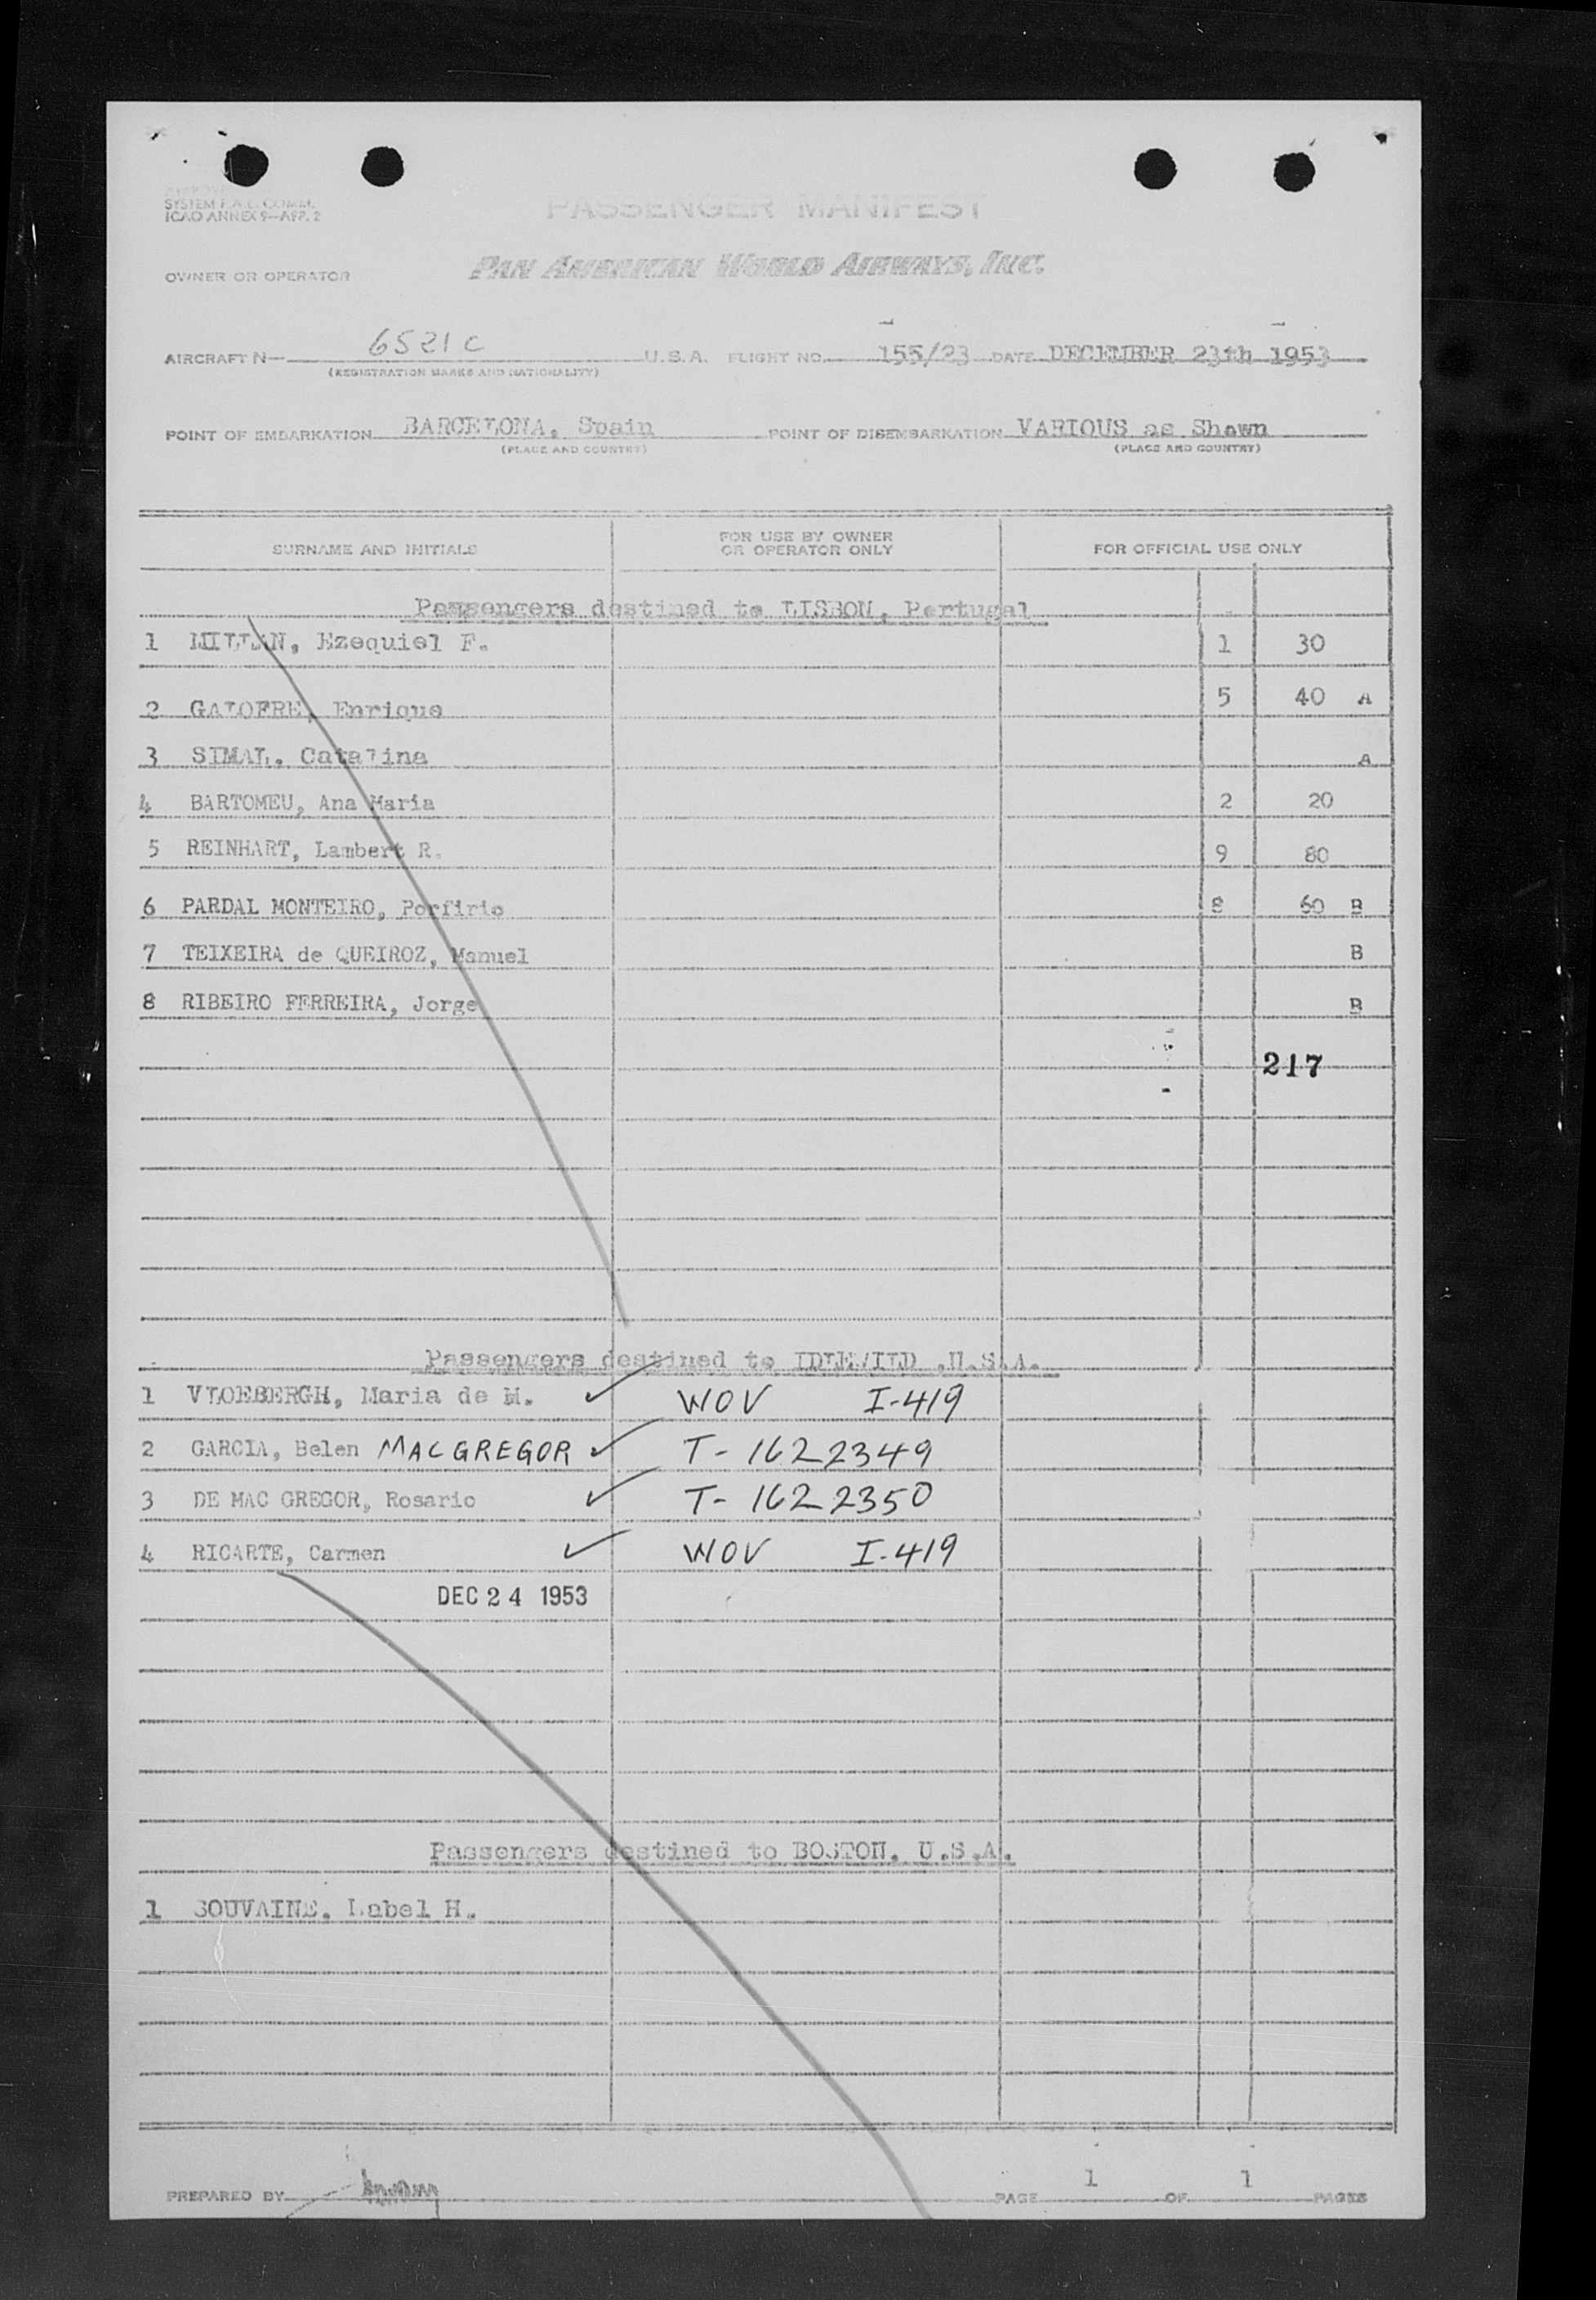 SYSTEM F.A.L. COMM.
ICAO ANNEX 9—APP. 2
PASSENGER MANIFEST
OWNER OR OPERATOR PAN AMERICAN WORLD AIRWAYS, INC.
AIRCRAFT N— 6521C U.S.A. FLIGHT NO. 155/23 DATE DECEMBER 23th 1953
(REGISTRATION MARKS AND NATIONALITY)
POINT OF EMBARKATION BARCELONA, Spain POINT OF DISEMBARKATION VARIOUS as Shown
(PLACE AND COUNTRY) (PLACE AND COUNTRY)
SURNAME AND INITIALS FOR USE BY OWNER OR OPERATOR ONLY FOR OFFICIAL USE ONLY
Passengers destined to LISBON, Portugal
1 MILLAN, Ezequiel F. 1 30
2 GALOFRE, Enrique 5 40 A
3 SIMAL, Catalina A
4 BARTOMEU, Ana Maria 2 20
5 REINHART, Lambert R. 9 80
6 PARDAL MONTEIRO, Porfirio 8 60 B
7 TEIXEIRA de QUEIROZ, Manuel B
8 RIBEIRO FERREIRA, Jorge B
217
Passengers destined to IDLEWILD .U.S.A.
1 VLOEBERGH, Maria de M. ✓ WOV I-419
2 GARCIA, Belen MACGREGOR ✓ T-1622349
3 DE MAC GREGOR, Rosario ✓ T-1622350
4 RICARTE, Carmen ✓ WOV I-419
DEC 24 1953
Passengers destined to BOSTON, U.S.A.
1 SOUVAINE, Label H.
PREPARED BY PAGE 1 OF 1 PAGES